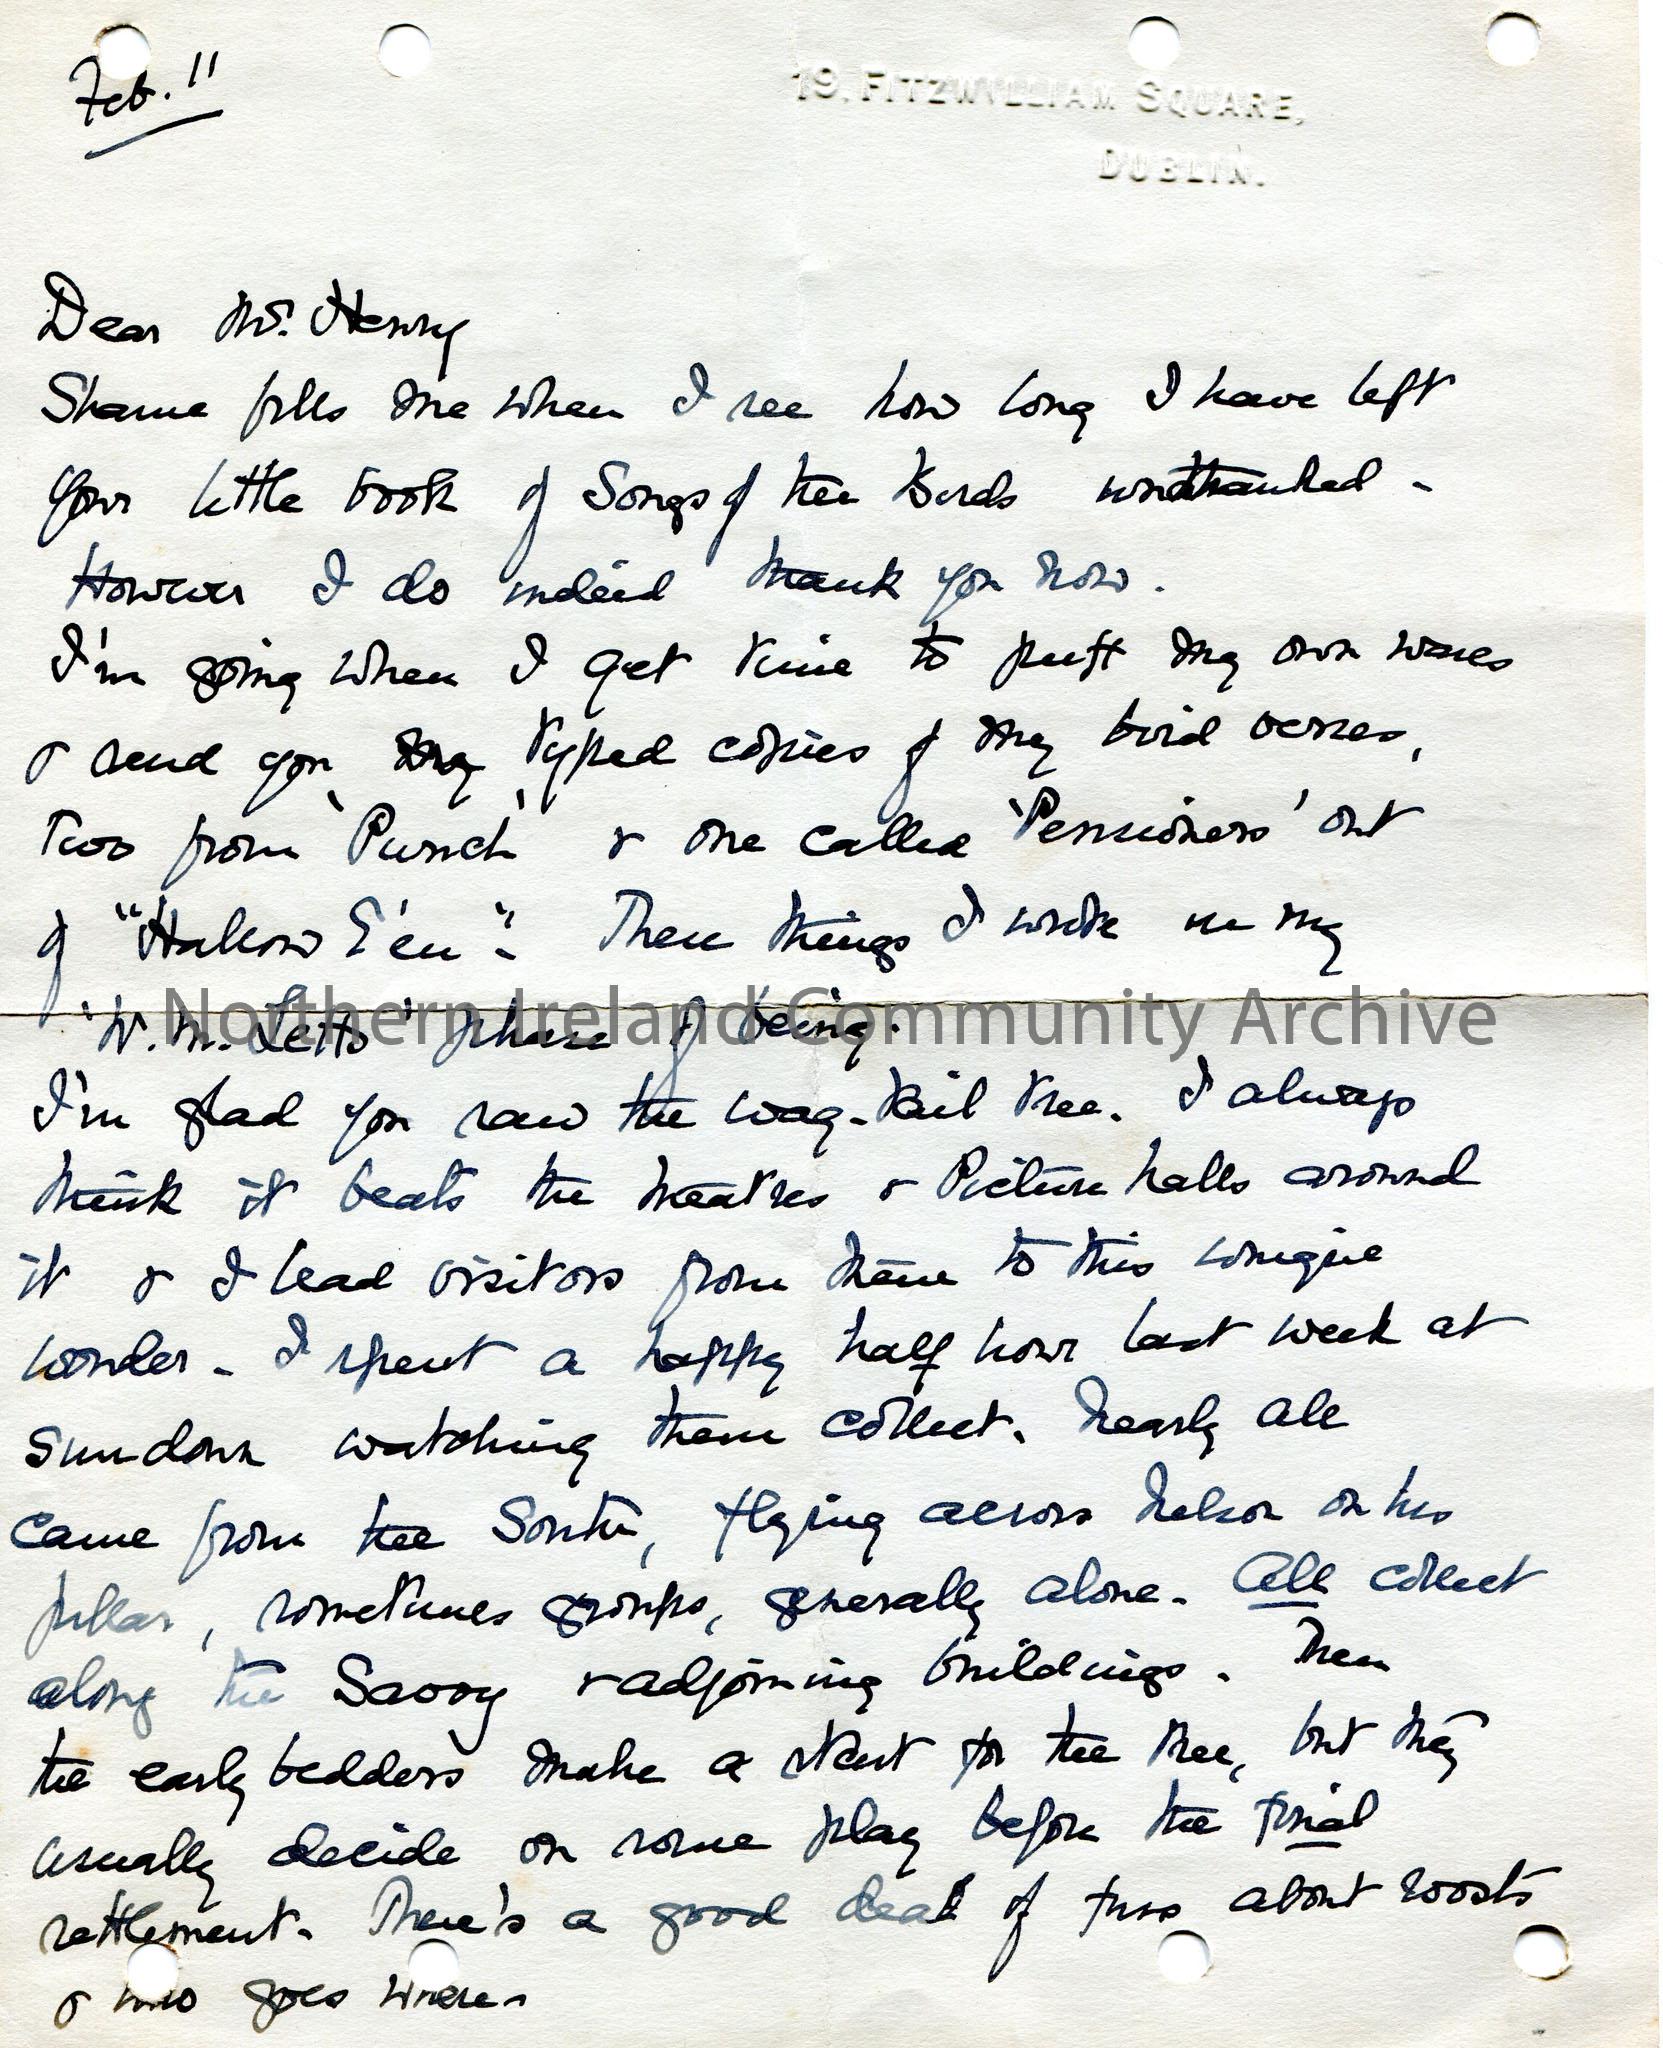 Feb. 11
19, FITZWILLIAM SQUARE,
DUBLIN.
Dear Mr. Henry
Shame fills me when I see how long I have left
your little book of Songs of the Birds unthanked -
However I do indeed thank you now.
I'm going when I get time to puff my own wares
& send you my typed copies of my bird verses,
two from 'Punch' & one called 'Pensioners' out
of "Hallow E'en" - These things I wrote in my
"W. M. Letts" phase of being.
Northern Ireland Community Archive
I'm glad you saw the wag-tail tree. I always
think it beats the theatres & Picture halls around
it & I lead visitors from them to this unique
wonder - I spent a happy half hour last week at
sundown watching them collect. Nearly all
came from the South, flying across Nelson on his
pillar, sometimes groups, generally alone. All collect
along the Savoy & adjoining buildings. Then
the early bedders make a start for the tree, but they
usually decide on some play before the final
settlement. There's a good deal of fuss about roosts
& who goes where.